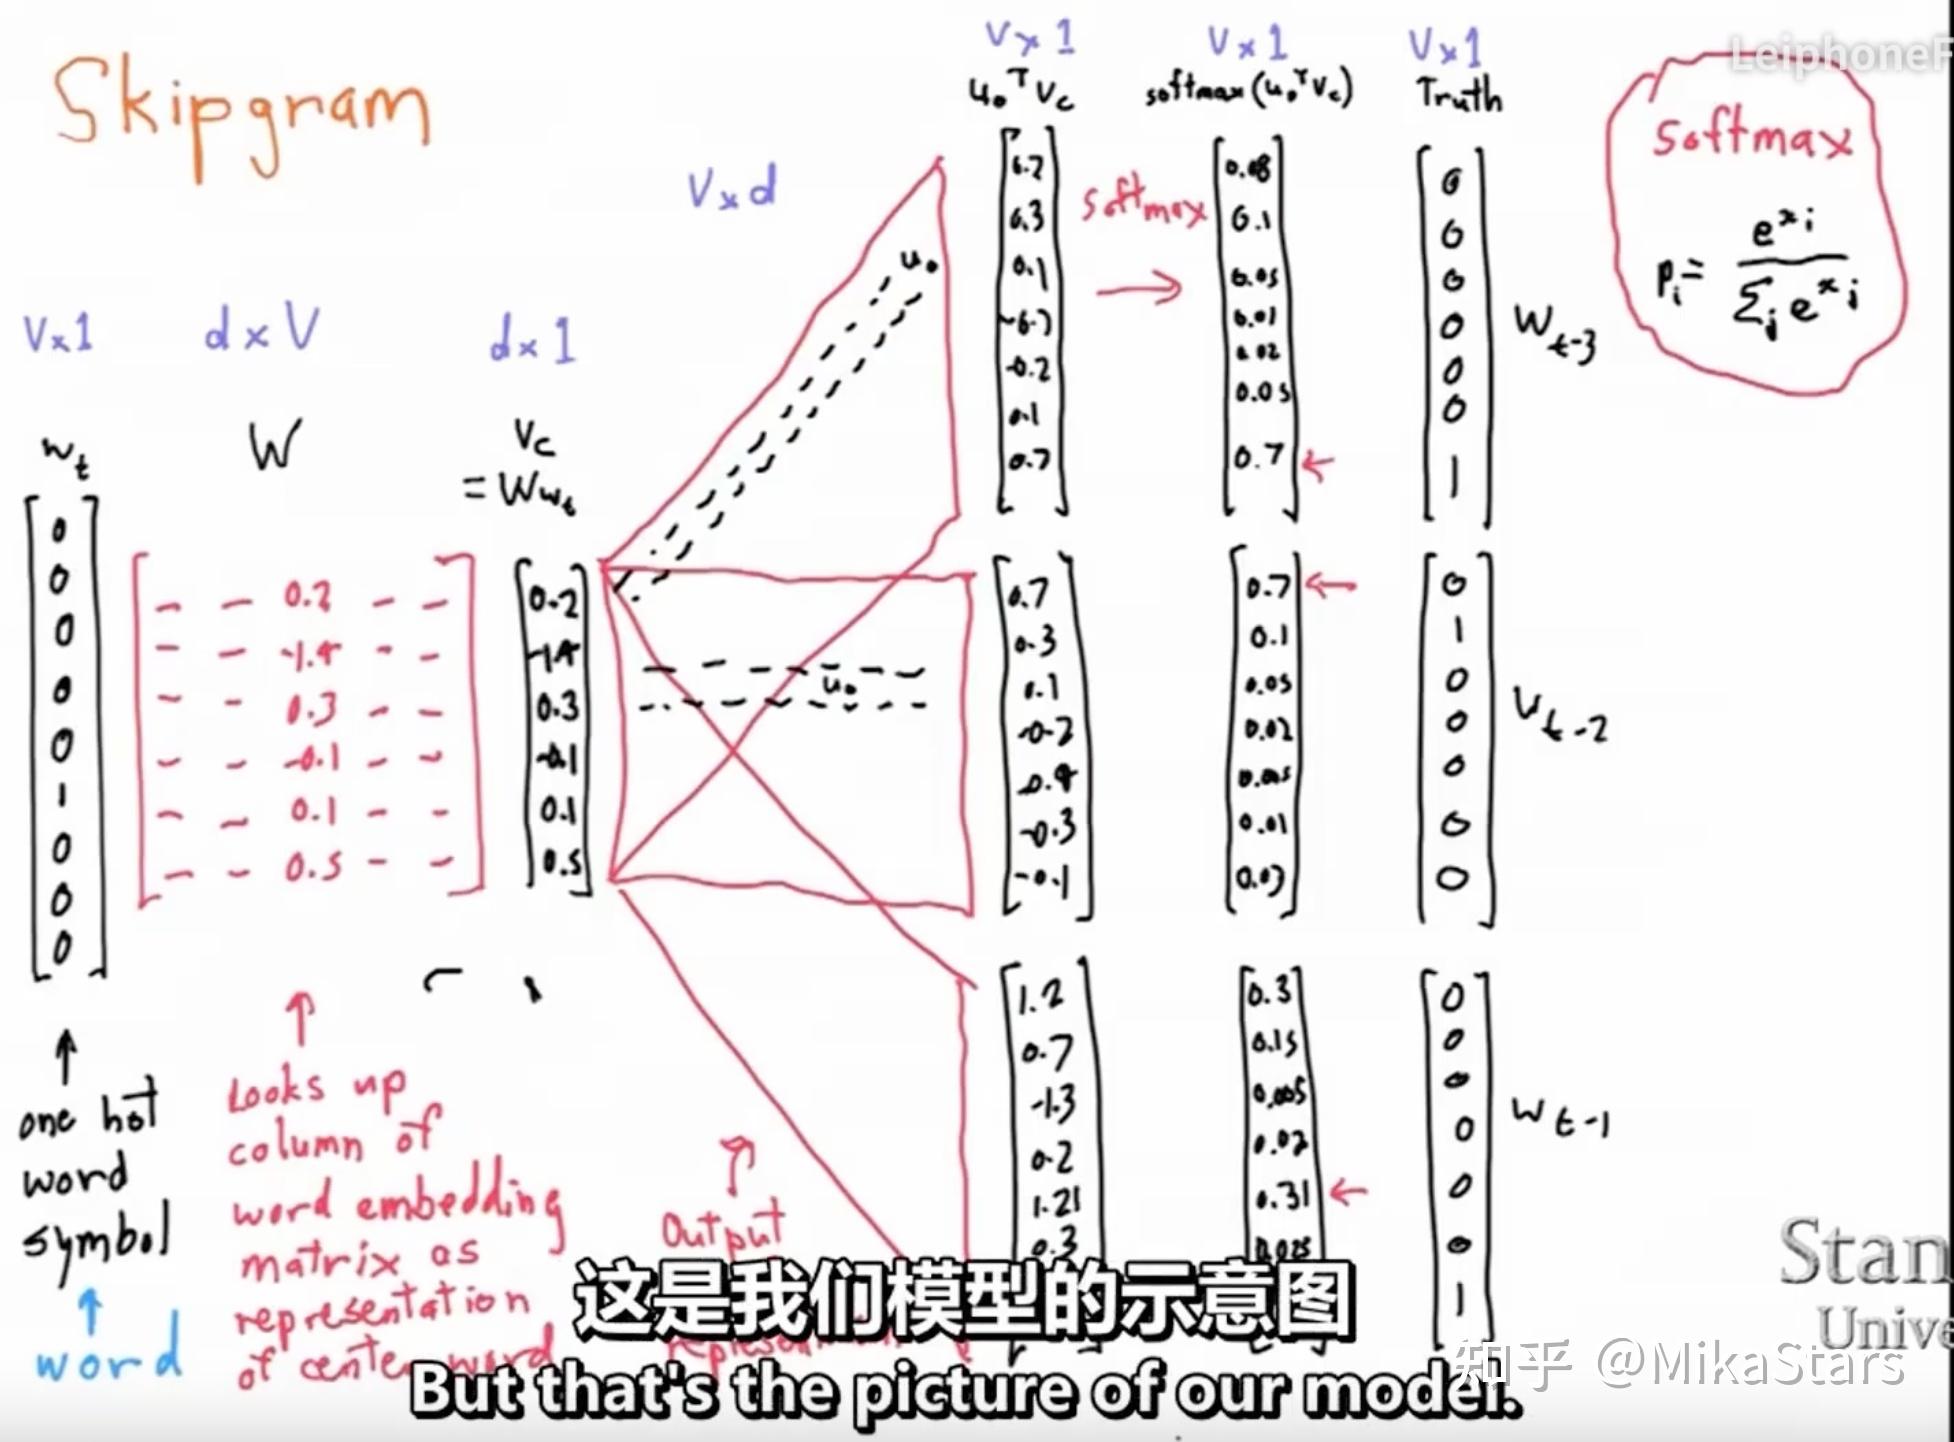 Skipgram
V×1
d×V
d×1
V×d
V×1
V×1
V×1
w_t
W
v_c
= Ww_t
u_o^T v_c
softmax(u_o^T v_c)
Truth
0
0
0
0
0
1
0
0
0
0.2
-1.4
0.3
-0.1
0.1
0.5
0.2
-1.4
0.3
-0.1
0.1
0.5
u_o
u_o
0.2
0.3
0.1
-0.7
-0.2
0.1
0.7
softmax
0.1
0.05
0.01
0.02
0.05
0.7
0
0
0
0
0
0
1
w_t-3
0.7
0.3
0.1
-0.2
-0.3
-0.1
0.7
0.1
0.05
0.02
0.01
0.03
0
1
0
0
0
0
0
t-2
1.2
0.7
-1.3
0.2
1.21
0.3
0.3
0.15
0.005
0.02
0.31
0
0
0
0
0
0
1
w_t-1
softmax
p_i = e^x_i / Σ_j e^x_j
one hot
word
symbol
word
Looks up
column of
word embedding
matrix as
representation
of center word
Output
LeiphoneF
Stan
Unive
这是我们模型的示意图
But that's the picture of our model.
知乎 @MikaStars